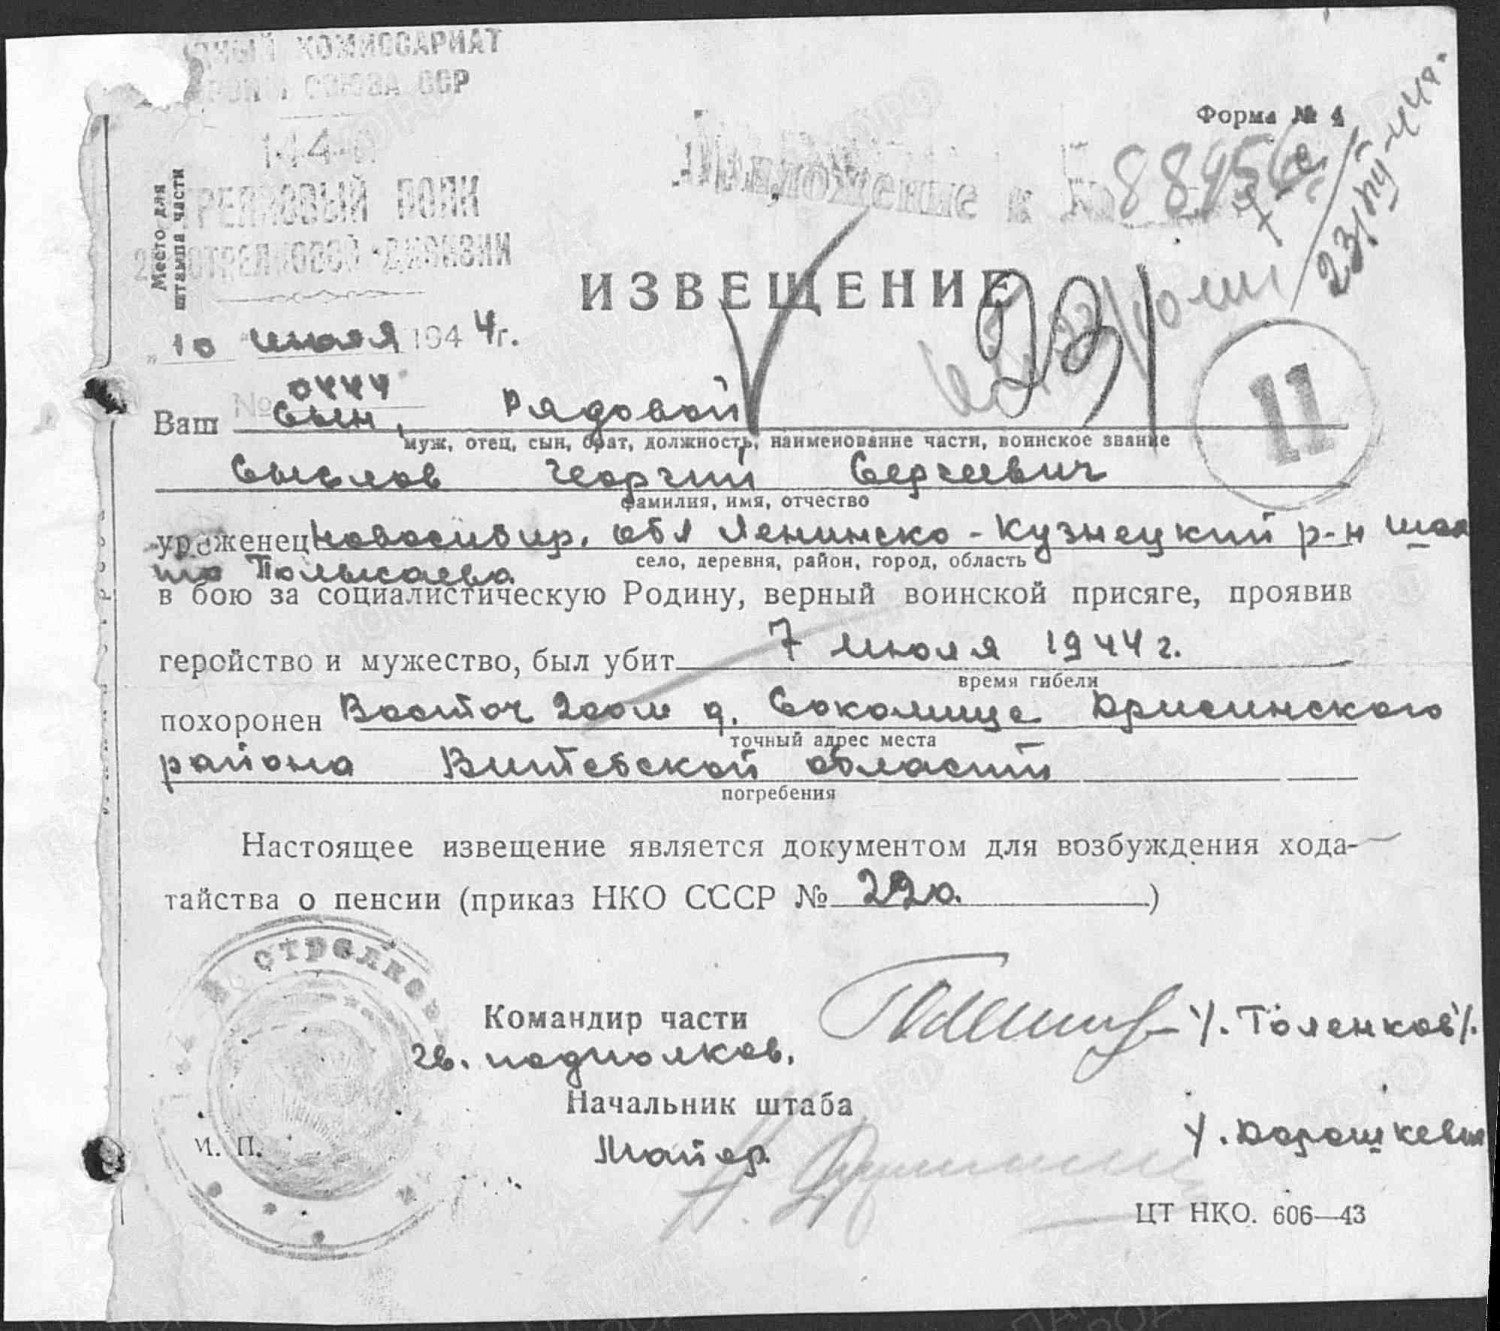 КОМИССАРИАТ
СОЮЗА ССР
Форма № 4
144-й
СТРЕЛКОВЫЙ ПОЛК
СТРЕЛКОВОЙ ДИВИЗИИ
Место для
штампа части
Приложение к
88456
7-е
23/VIII-44г.
ИЗВЕЩЕНИЕ
"10" июля 1944г.
№ 0444
93
11
Ваш Сын, Рядовой
муж, отец, сын, брат, должность, наименование части, воинское звание
Сыслов Георгий Сергеевич
фамилия, имя, отчество
уроженец Новосибир. обл Ленинско-Кузнецкий р-н шах
та Полысаева
село, деревня, район, город, область
в бою за социалистическую Родину, верный воинской присяге, проявив
геройство и мужество, был убит 7 июля 1944г.
время гибели
похоронен Восточ 200м д. Соколище Дрисинского
точный адрес места
района Витебской области
погребения
Настоящее извещение является документом для возбуждения хода-
тайства о пенсии (приказ НКО СССР № 220.)
стрелков
Командир части
гв. подполков. /. Толенков/.
Начальник штаба
Майор /. Дорошкевич
М. П.
ЦТ НКО. 606—43